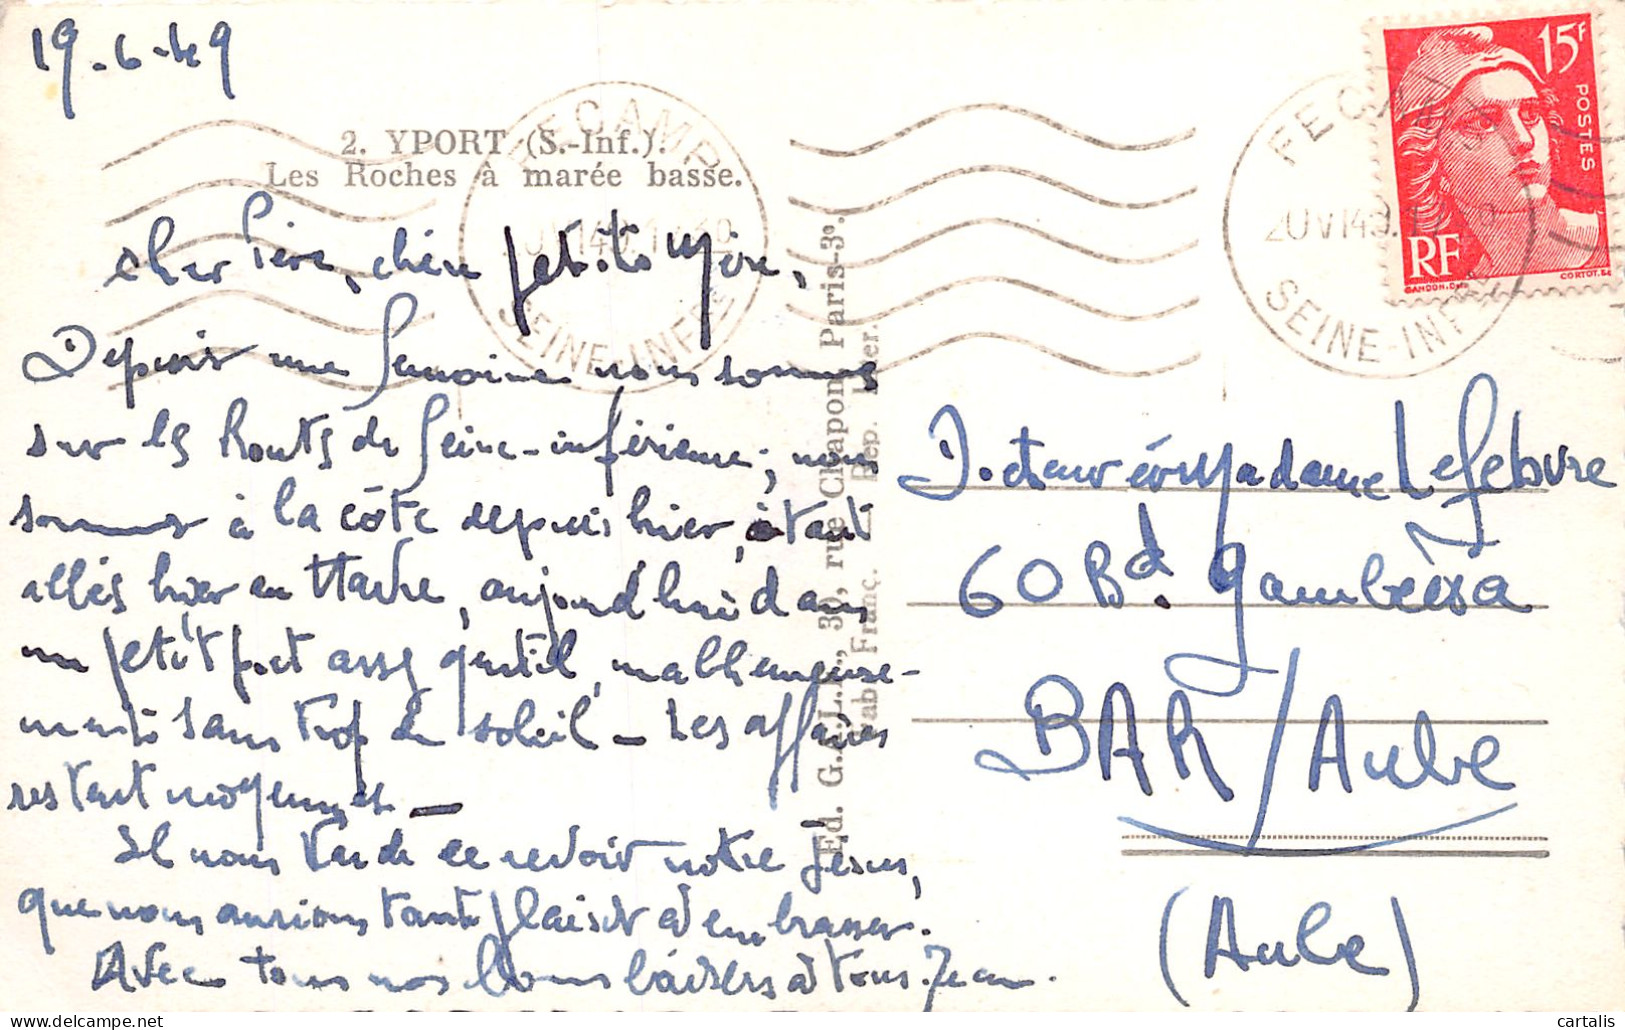 19-6-49
2. YPORT (S.-Inf.).
Les Roches à marée basse.
Cher Père, chère petite Mère,
Depuis une semaine nous sommes
sur les Routes de Seine-inférieure, nous
sommes à la côte depuis hier, étant
allés hier au Havre, aujourd'hui dans
un petit port assez gentil, malheureuse-
ment sans trop de soleil - Les affaires
restent moyennes -
Il nous tarde de revoir notre Jésus,
que nous aurions tant plaisir à embrasser.
Avec tous nos bons baisers à tous. Jean.
Ed. G.A.L.F., 30, rue Chapon, Paris-3e.
Fab. Franç. - Rep. Inter.
FECAMP
20 VI 49
SEINE-INFRE
FECAMP
20 VI 49
SEINE-INFRE
15F
POSTES
RF
GANDON. Del.
CORTOT. Sc
Docteur et Madame Lefebvre
60 Bd. Gambetta
BAR/Aube
(Aube)
cartalis